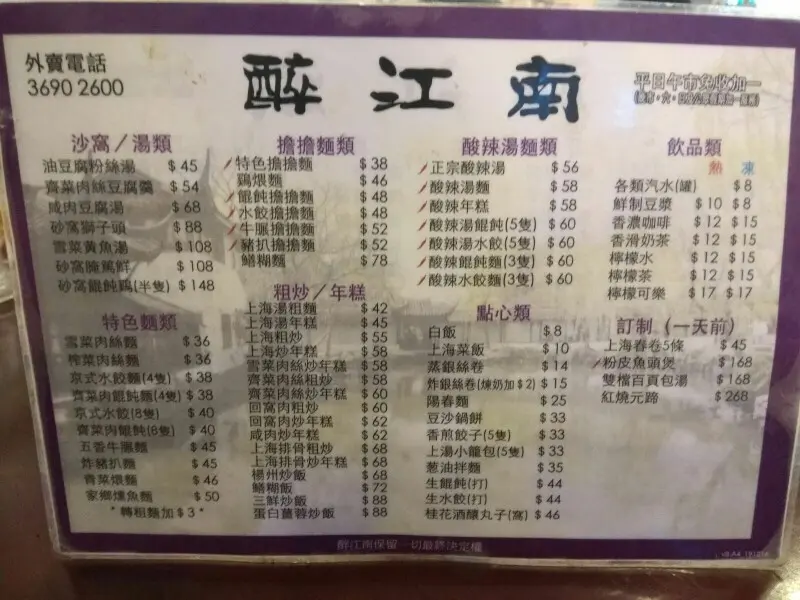 外賣電話
3690 2600
醉江南
平日午市免收加一
沙窩／湯類
油豆腐粉絲湯 $45
齊菜肉絲豆腐羹 $54
咸肉豆腐湯 $68
砂窩獅子頭 $88
雪菜黄魚湯 $108
砂窩腌篤鮮 $108
砂窩餛飩鶏(半隻) $148
特色麵類
雪菜肉絲麵 $36
榨菜肉絲麵 $36
京式水餃麵(4隻) $38
齊菜肉餛飩麵(4隻) $38
京式水餃(8隻) $40
齊菜肉餛飩(8隻) $40
五香牛𦟌麵 $45
炸豬扒麵 $45
青菜煨麵 $46
家鄉燻魚麵 $50
*轉粗麵加$3*
擔擔麵類
特色擔擔麵 $38
鶏煨麵 $46
餛飩擔擔麵 $48
水餃擔擔麵 $48
牛𦟌擔擔麵 $52
豬扒擔擔麵 $52
鱔糊麵 $78
粗炒／年糕
上海湯粗麵 $42
上海湯年糕 $45
上海粗炒 $55
上海炒年糕 $58
雪菜肉絲炒年糕 $58
齊菜肉絲粗炒 $58
齊菜肉絲炒年糕 $60
回窩肉粗炒 $60
回窩肉炒年糕 $62
咸肉炒年糕 $62
上海排骨粗炒 $68
上海排骨炒年糕 $68
楊州炒飯 $68
鱔糊飯 $72
三鮮炒飯 $88
蛋白薑蓉炒飯 $88
酸辣湯麵類
正宗酸辣湯 $56
酸辣湯麵 $58
酸辣年糕 $58
酸辣湯餛飩(5隻) $60
酸辣湯水餃(5隻) $60
酸辣餛飩麵(3隻) $60
酸辣水餃麵(3隻) $60
點心類
白飯 $8
上海菜飯 $10
蒸銀絲卷 $14
炸銀絲卷(煉奶加$2) $15
陽春麵 $25
豆沙鍋餅 $33
香煎餃子(5隻) $33
上湯小籠包(5隻) $33
葱油拌麵 $35
生餛飩(打) $44
生水餃(打) $44
桂花酒釀丸子(窩) $46
飲品類
熱 凍
各類汽水(罐) $8
鮮制豆漿 $10 $8
香濃咖啡 $12 $15
香滑奶茶 $12 $15
檸檬水 $12 $15
檸檬茶 $12 $15
檸檬可樂 $17 $17
訂制（一天前）
上海春卷5條 $45
粉皮魚頭煲 $168
雙檔百頁包湯 $168
紅燒元蹄 $268
醉江南保留一切最終決定權